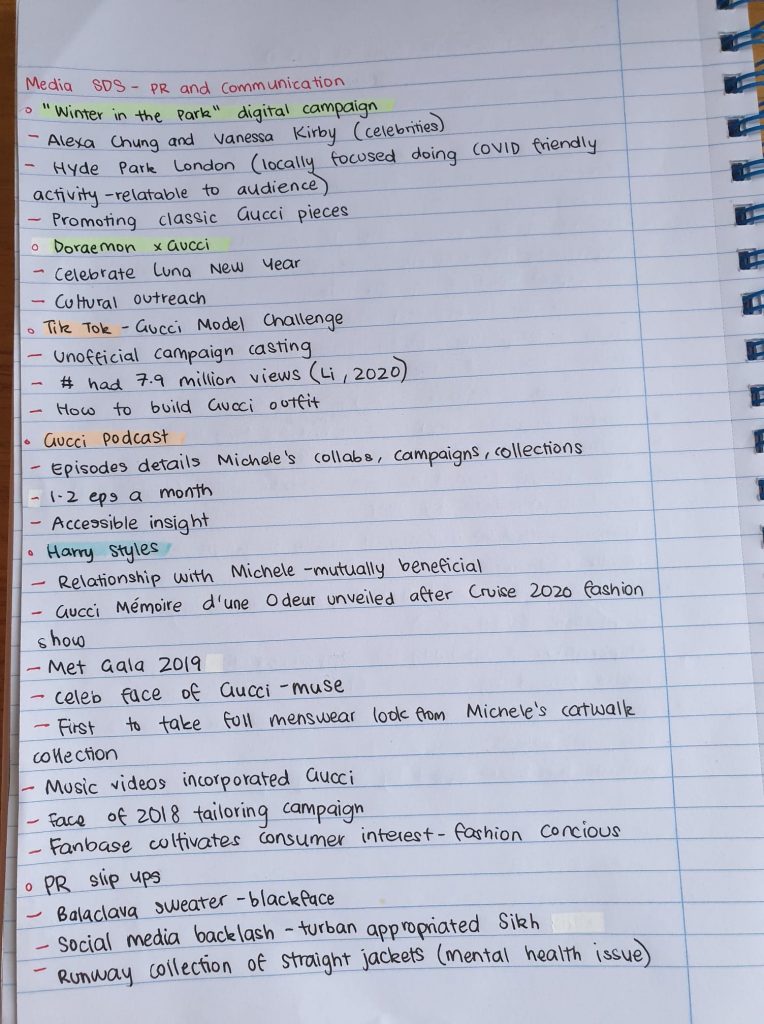 Media SDS - PR and Communication
○ "Winter in the Park" digital campaign
- Alexa Chung and Vanessa Kirby (celebrities)
- Hyde Park London (locally focused doing COVID friendly
activity - relatable to audience)
- Promoting classic Gucci pieces
○ Doraemon x Gucci
- Celebrate Luna New Year
- Cultural outreach
○ Tik Tok - Gucci Model Challenge
- Unofficial campaign casting
- # had 7.9 million views (Li, 2020)
- How to build Gucci outfit
○ Gucci Podcast
- Episodes details Michele's collabs, campaigns, collections
- 1-2 eps a month
- Accessible insight
○ Harry Styles
- Relationship with Michele - mutually beneficial
- Gucci Mémoire d'une Odeur unveiled after Cruise 2020 fashion
show
- Met Gala 2019
- Celeb face of Gucci - muse
- First to take full menswear look from Michele's catwalk
collection
- Music videos incorporated Gucci
- Face of 2018 tailoring campaign
- Fanbase cultivates consumer interest - fashion concious
○ PR slip ups
- Balaclava sweater - blackface
- Social media backlash - turban appropriated Sikh
- Runway collection of straight jackets (mental health issue)